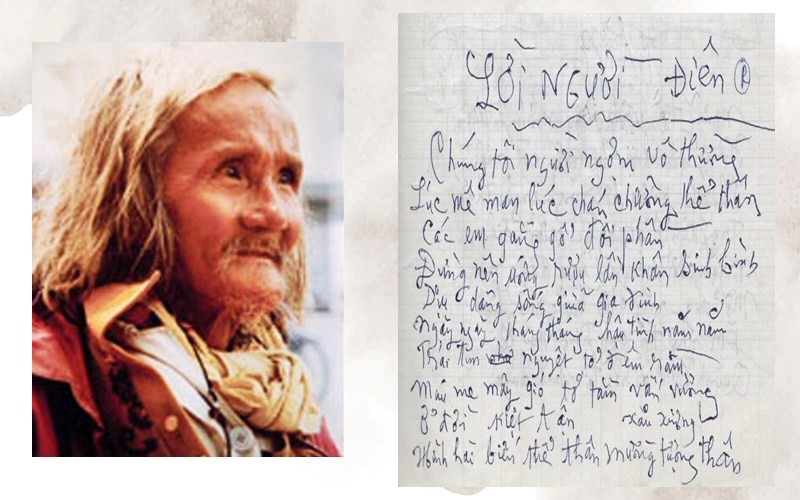 Lời Người Điên
Chúng tôi người ngợm vô thường
Lúc mê man lúc chán chường thể thân
Các em gắng gổ đời phần
Đừng nên uống rượu lần khân bình bình
Dịu dàng sống giữa gia đình
Ngày ngày tháng tháng hậu tình năm năm
Trái tim nguyệt tỏ đêm rằm
Máu me mây gió tơ tằm vấn vương
Ở đời kiệt tận xấu xương
Hình hài biến thể thân mường tượng thần